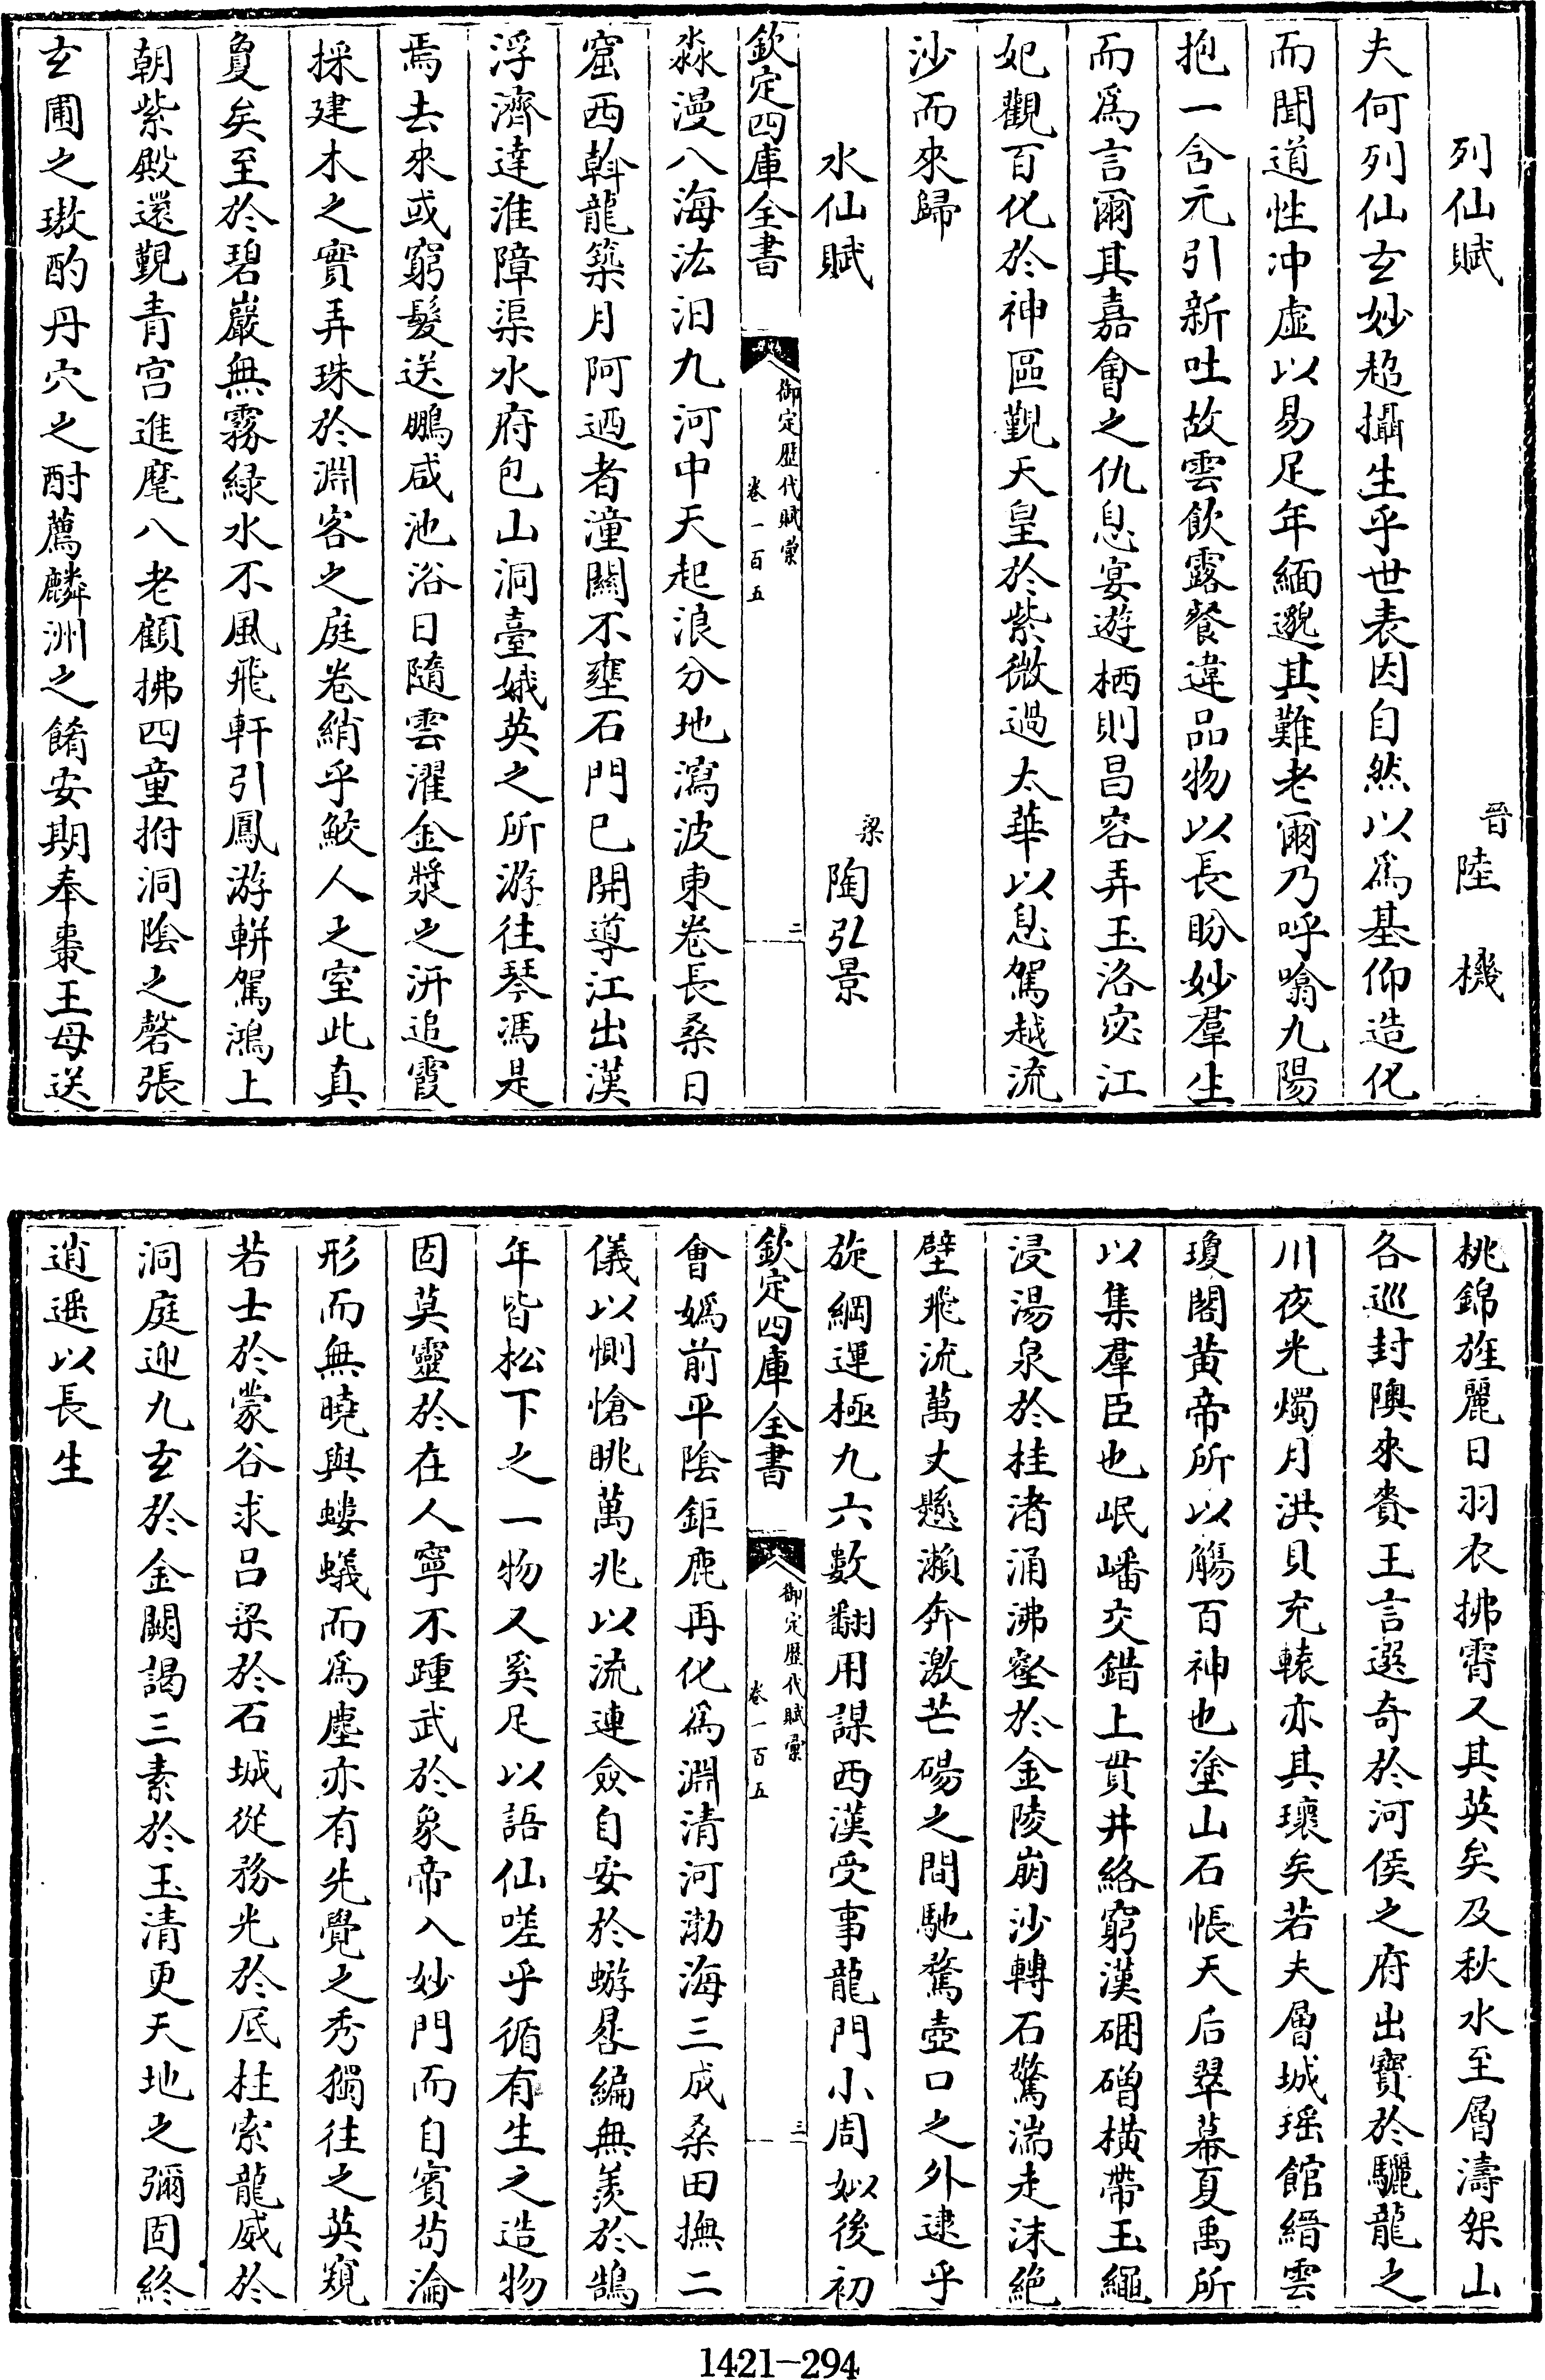 列仙賦
晉陸　機
夫何列仙玄妙超攝生乎世表因自然以爲基仰造化
而聞道性冲虛以易足年緬邈其難老爾乃呼噏九陽
抱一含元引新吐故雲飲露餐違品物以長盼妙羣生
而爲言爾其嘉會之仇息宴遊栖則昌容弄玉洛宓江
妃觀百化於神區覲天皇於紫微過太華以息駕越流
沙而來歸
水仙賦
梁陶弘景
欽定四庫全書
御定歷代賦彙
卷一百五
二
淼漫八海汯汩九河中天起浪分地瀉波東卷長桑日
窟西斡龍築月阿迺者潼關不壅石門已開導江出漢
浮濟達淮障渠水府包山洞臺娥英之所游往琴馮是
焉去來或窮髮送鵬咸池浴日隨雲濯金漿之汧追霞
採建木之實弄珠於淵客之庭卷綃乎鮫人之室此真
夐矣至於碧巖無霧綠水不風飛軒引鳳游軿駕鴻上
朝紫殿還覲青宮進麾八老顧拂四童拊洞陰之磬張
玄圃之璈酌丹穴之酎薦麟洲之餚安期奉棗王母送
桃錦旌麗日羽衣拂霄又其英矣及秋水至層濤架山
各巡封隩來賚王言選奇於河侯之府出寶於驪龍之
川夜光燭月洪貝充轅亦其瓌矣若夫層城瑤館縉雲
瓊閣黃帝所以觴百神也塗山石帳天后翠幕夏禹所
以集羣臣也岷嶓交錯上貫井絡窮漢硱磳橫帶玉繩
浸湯泉於桂渚涌沸壑於金陵崩沙轉石驚湍走沫絶
壁飛流萬丈懸瀨奔激芒碭之間馳騖壺口之外逮乎
旋綱運極九六數翻用謀西漢受事龍門小周姒後初
欽定四庫全書
御定歷代賦彙
卷一百五
三
會嬀前平陰鉅鹿再化爲淵清河渤海三成桑田撫二
儀以惻愴眺萬兆以流連僉自安於蝣晷編無羨於鵠
年皆松下之一物又奚足以語仙嗟乎循有生之造物
固莫靈於在人寧不踵武於象帝入妙門而自賓苟淪
形而無曉與螻蟻而爲塵亦有先覺之秀獨往之英窺
若士於蒙谷求呂梁於石城從務光於底柱索龍威於
洞庭迎九玄於金闕謁三素於玉清更天地之彌固終
逍遥以長生
1421－294